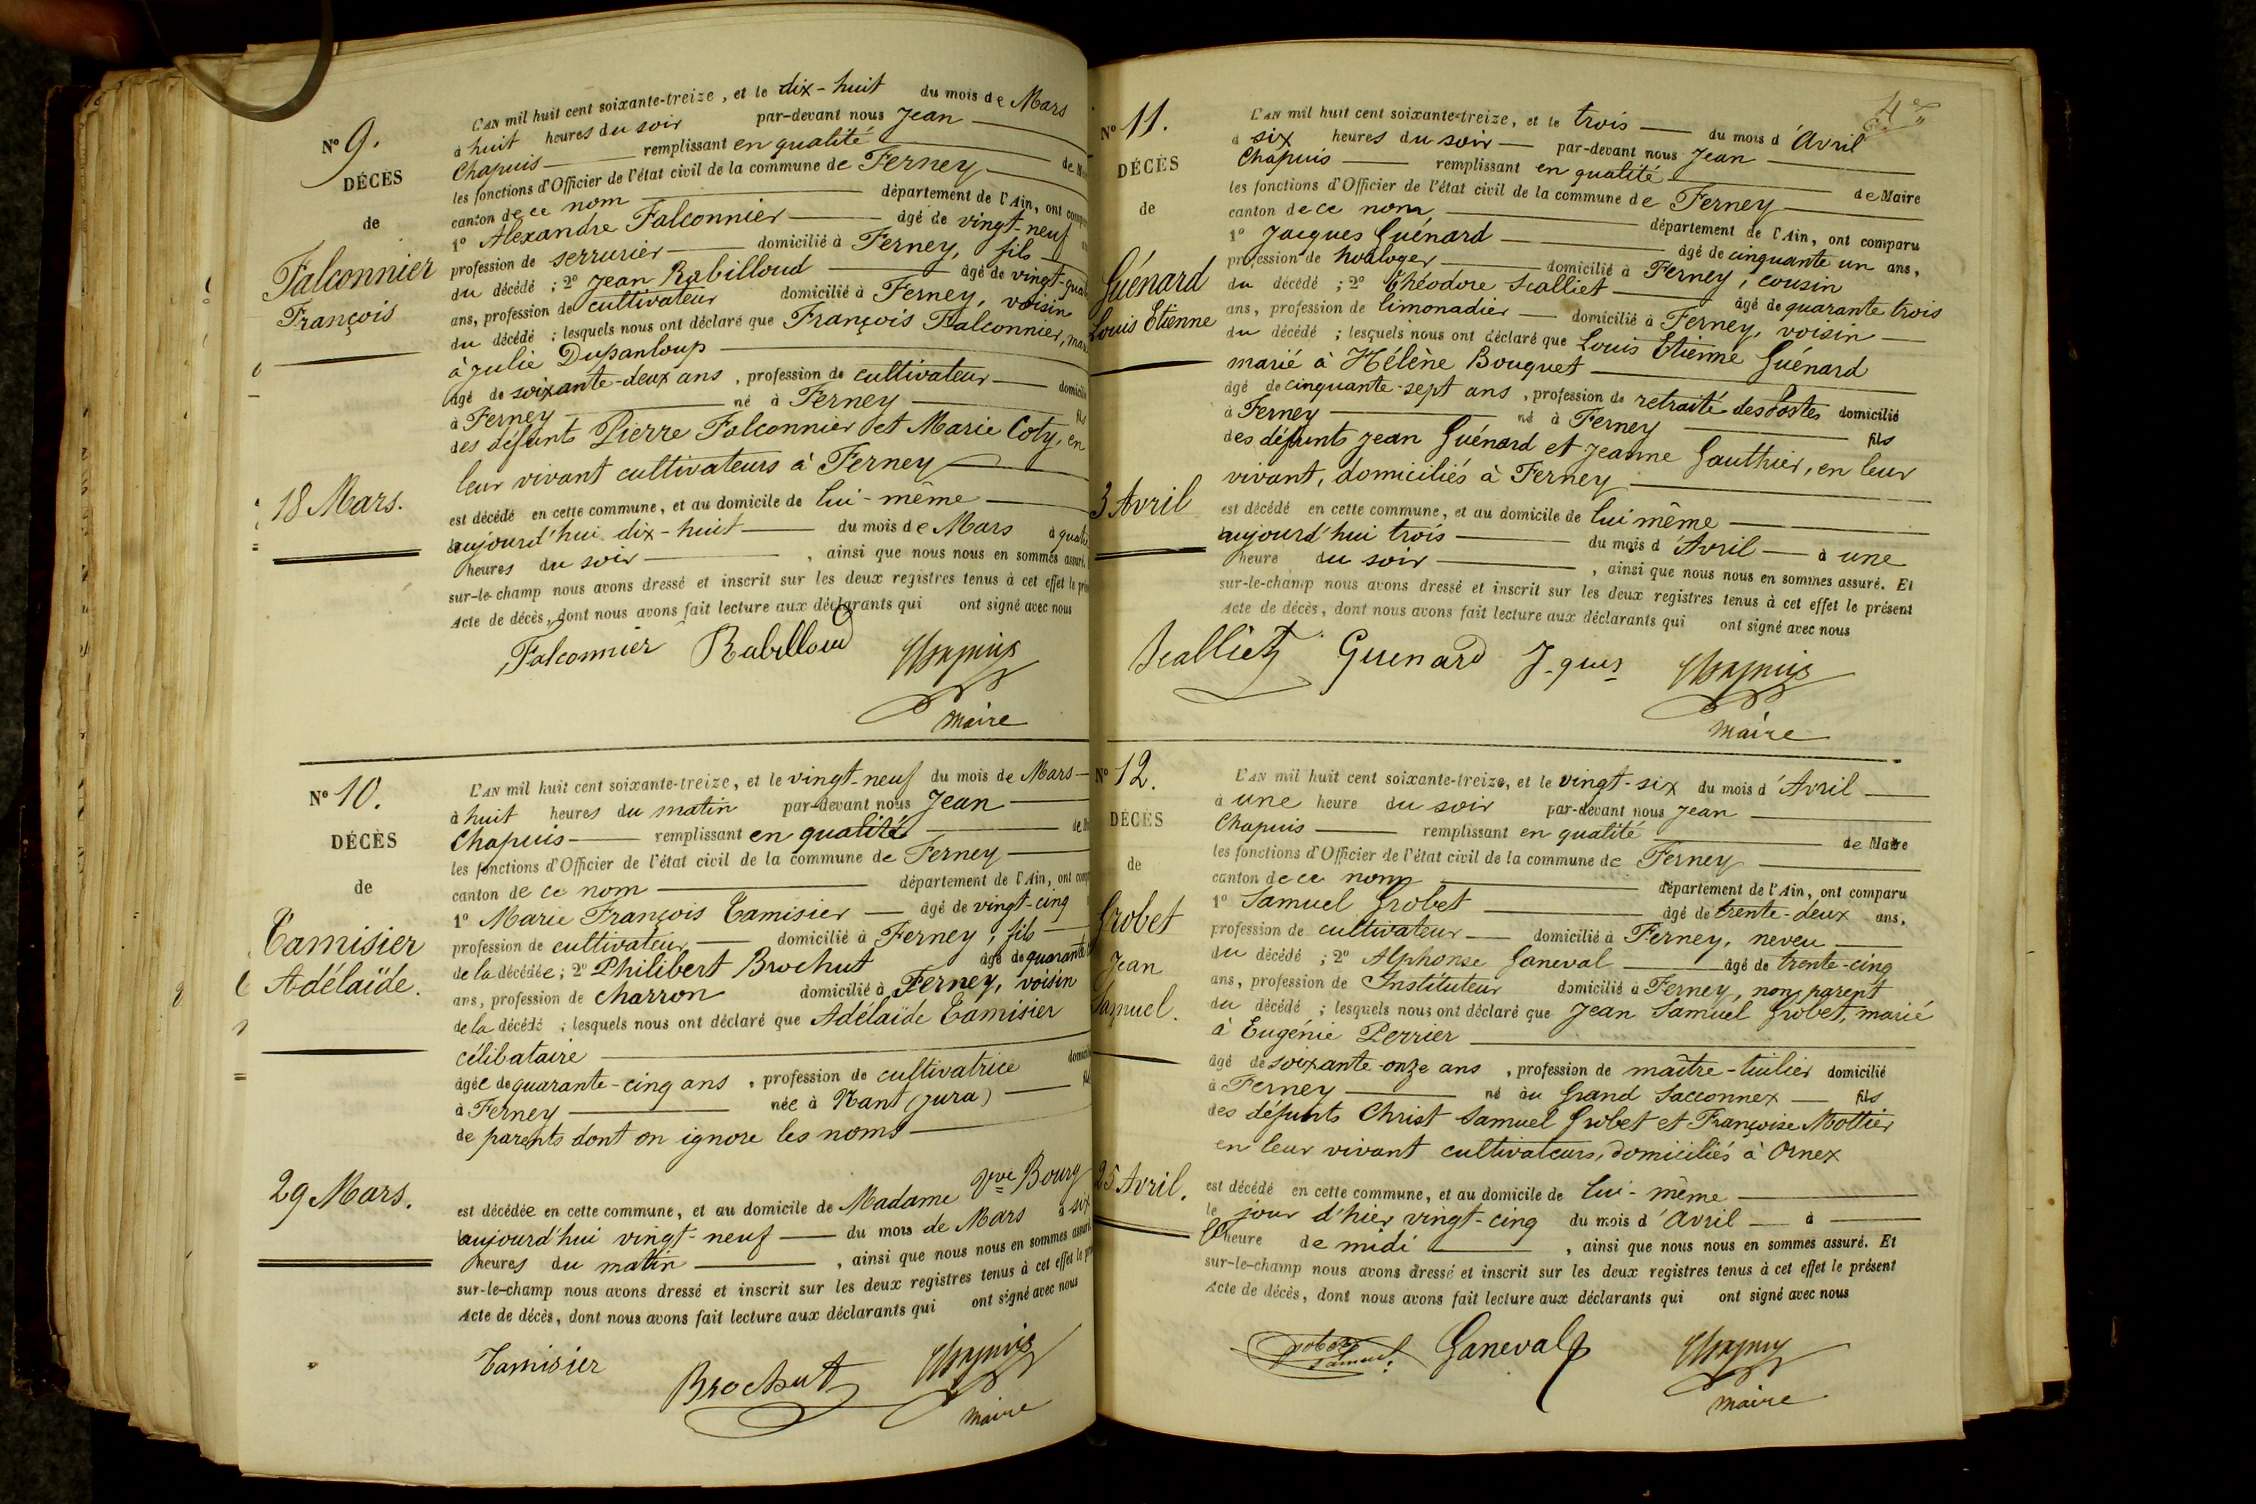 N° 9.
DÉCÈS
de
Falconnier
François
18 Mars.
L'AN mil huit cent soixante-treize, et le dix-huit du mois de Mars
à huit heures du soir par-devant nous Jean
Chapuis remplissant en qualité de
les fonctions d'Officier de l'état civil de la commune de Ferney
canton de ce nom département de l'Ain, ont
1° Alexandre Falconnier âgé de vingt-neuf
profession de serrurier domicilié à Ferney, fils
du décédé ; 2° Jean Rabilloud âgé de
ans, profession de cultivateur domicilié à Ferney, voisin
du décédé ; lesquels nous ont déclaré que François Falconnier,
à Julie Dupanloup
âgé de soixante-deux ans, profession de cultivateur
à Ferney né à Ferney fils
des défunts Pierre Falconnier et Marie Coty, en
leur vivant cultivateurs à Ferney
est décédé en cette commune, et au domicile de lui-même
aujourd'hui dix-huit du mois de Mars à
heures du soir, ainsi que nous nous en sommes assuré.
sur-le-champ nous avons dressé et inscrit sur les deux registres tenus à cet effet le
Acte de décès, dont nous avons fait lecture aux déclarants qui ont signé avec nous
Falconnier Rabilloud Chapuis
Maire
N° 10.
DÉCÈS
de
Tamisier
Adélaïde.
29 Mars.
L'AN mil huit cent soixante-treize, et le vingt-neuf du mois de Mars
à huit heures du matin par-devant nous Jean
Chapuis remplissant en qualité de
les fonctions d'Officier de l'état civil de la commune de Ferney
canton de ce nom département de l'Ain, ont
1° Marie François Tamisier âgé de vingt-cinq
profession de cultivateur domicilié à Ferney, fils
de la décédée ; 2° Philibert Brochut âgé de quarante
ans, profession de charron domicilié à Ferney, voisin
de la décédé ; lesquels nous ont déclaré que Adélaïde Tamisier
célibataire
âgée de quarante-cinq ans, profession de cultivatrice
à Ferney née à Nant (Jura)
de parents dont on ignore les noms
est décédée en cette commune, et au domicile de Madame Vve Bourg
aujourd'hui vingt-neuf du mois de Mars à six
heures du matin, ainsi que nous nous en sommes assuré.
sur-le-champ nous avons dressé et inscrit sur les deux registres tenus à cet effet le
Acte de décès, dont nous avons fait lecture aux déclarants qui ont signé avec nous
Tamisier Brochut Chapuis
Maire
N° 11.
DÉCÈS
de
Guénard
Louis Etienne
3 Avril
L'AN mil huit cent soixante-treize, et le trois du mois d'Avril
à six heures du soir par-devant nous Jean
Chapuis remplissant en qualité de Maire
les fonctions d'Officier de l'état civil de la commune de Ferney
canton de ce nom département de l'Ain, ont comparu
1° Jacques Guénard âgé de cinquante un ans,
profession de horloger domicilié à Ferney, cousin
du décédé ; 2° Théodore Scalliet âgé de quarante trois
ans, profession de limonadier domicilié à Ferney, voisin
du décédé ; lesquels nous ont déclaré que Louis Etienne Guénard
marié à Hélène Bouquet
âgé de cinquante-sept ans, profession de retraité des Postes domicilié
à Ferney né à Ferney fils
des défunts Jean Guénard et Jeanne Gauthier, en leur
vivant, domiciliés à Ferney
est décédé en cette commune, et au domicile de lui même
aujourd'hui trois du mois d'Avril à une
heure du soir, ainsi que nous nous en sommes assuré. Et
sur-le-champ nous avons dressé et inscrit sur les deux registres tenus à cet effet le présent
Acte de décès, dont nous avons fait lecture aux déclarants qui ont signé avec nous
Scalliet Guenard J-ques Chapuis
Maire
N° 12.
DÉCÈS
de
Grobet
Jean
Samuel.
25 Avril.
L'AN mil huit cent soixante-treize, et le vingt-six du mois d'Avril
à une heure du soir par-devant nous Jean
Chapuis remplissant en qualité de Maire
les fonctions d'Officier de l'état civil de la commune de Ferney
canton de ce nom département de l'Ain, ont comparu
1° Samuel Grobet âgé de trente-deux ans,
profession de cultivateur domicilié à Ferney, neveu
du décédé ; 2° Alphonse Ganeval âgé de trente-cinq
ans, profession de Instituteur domicilié à Ferney, non parent
du décédé ; lesquels nous ont déclaré que Jean Samuel Grobet, marié
à Eugénie Perrier
âgé de soixante-onze ans, profession de maître-tuilier domicilié
à Ferney né au Grand Sacconnex fils
des défunts Christ Samuel Grobet et Françoise Mottier
en leur vivant cultivateurs, domiciliés à Ornex
est décédé en cette commune, et au domicile de lui-même
le jour d'hier vingt-cinq du mois d'Avril à
l'heure de midi, ainsi que nous nous en sommes assuré. Et
sur-le-champ nous avons dressé et inscrit sur les deux registres tenus à cet effet le présent
Acte de décès, dont nous avons fait lecture aux déclarants qui ont signé avec nous
Grobet Samuel. Ganeval Chapuis
Maire